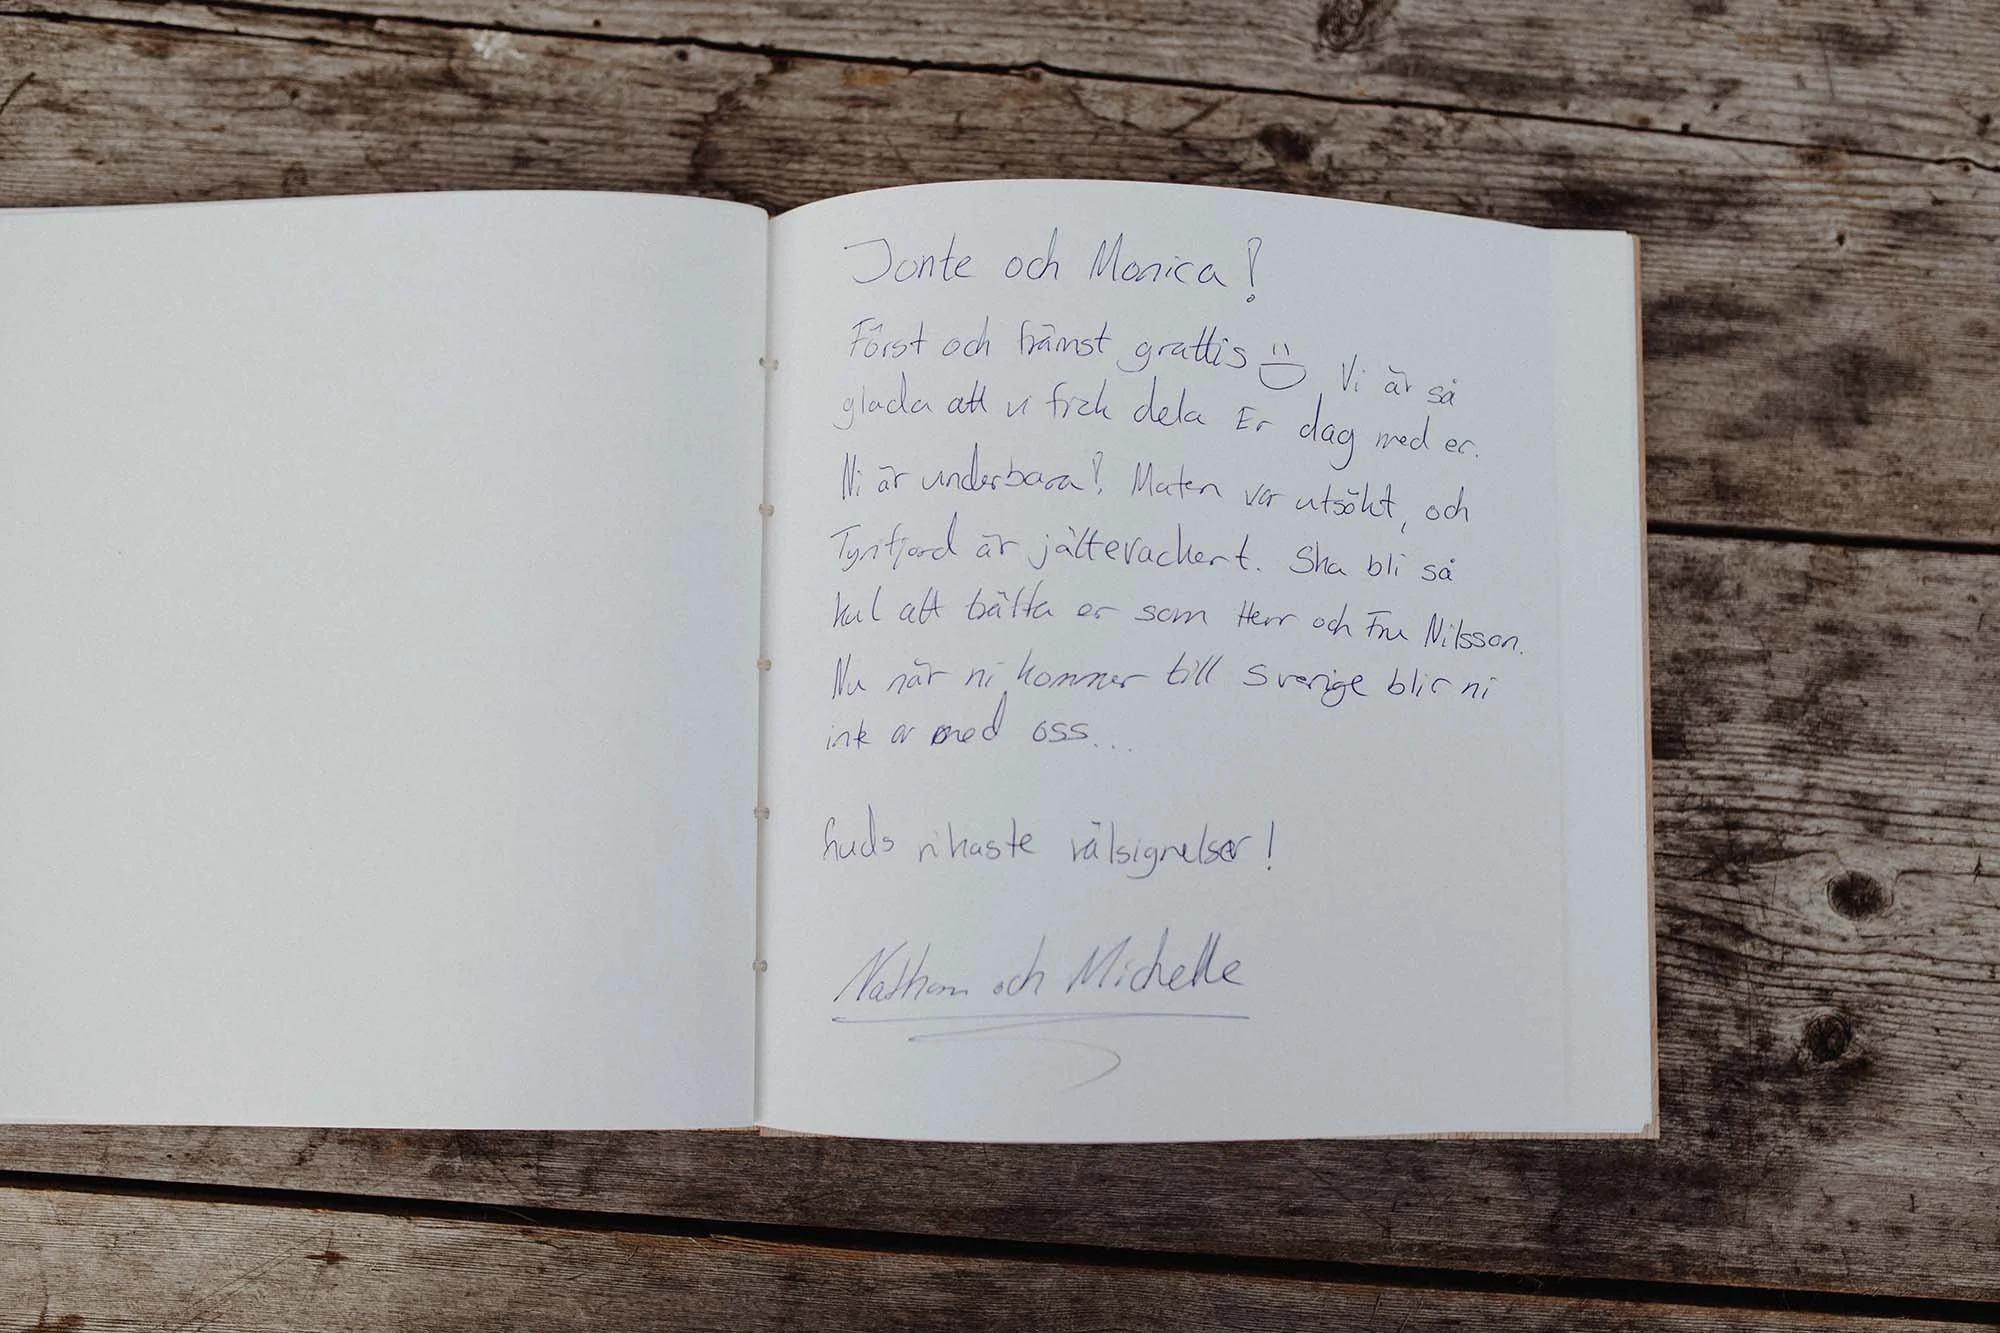 Jonte och Monica!
Först och främst grattis Vi är så
glada att vi fick dela Er dag med er.
Ni är underbara! Maten var utsökt, och
Tyrifjord är jättevackert. Ska bli så
kul att träffa er som Herr och Fru Nilsson.
Nu när ni kommer till Sverige blir ni
med oss...
Guds rikaste välsignelser!
Nathan och Michelle